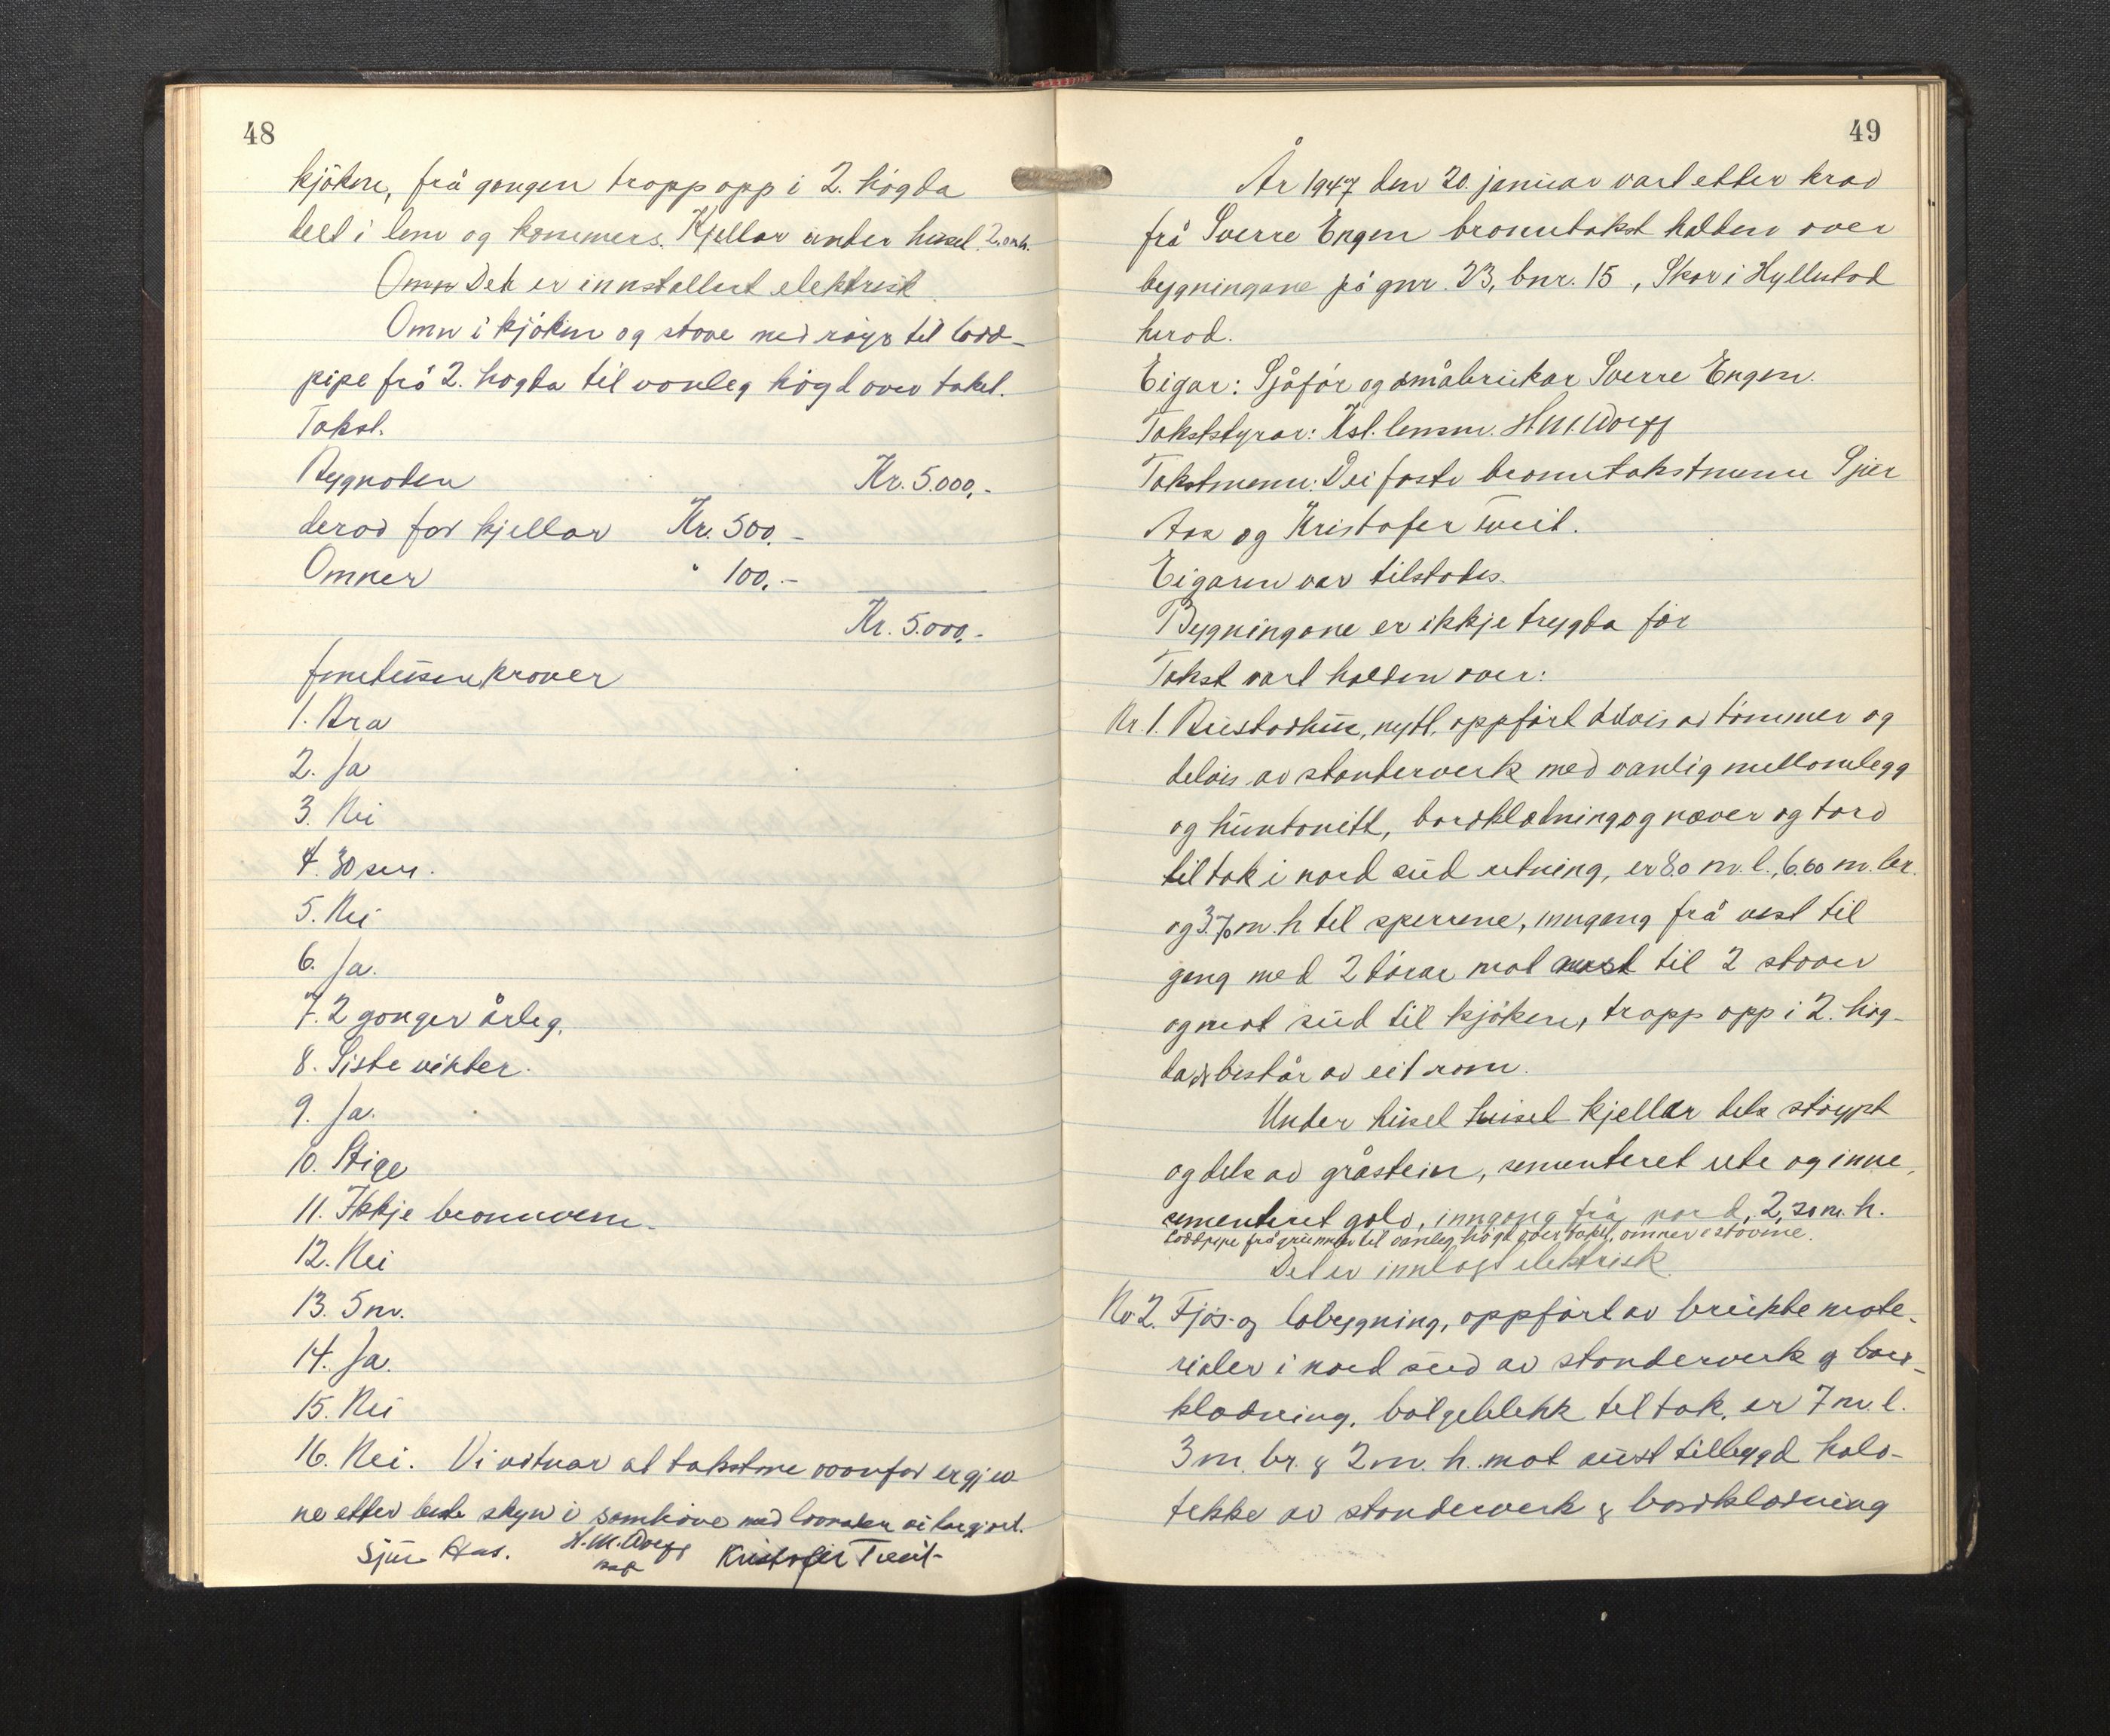 48
kjöken, frå gongen tropp opp i 2. högda
delt i lem og kammers. Kjellar under huset. 2,0 m h.
Omn Det er innstallert elektrisk
Omn i kjöken og stove med röyr til lodd-
pipe frå 2. högda til vanleg högd over taket.
Takst.
Bygnoden Kr. 5.000,-
derav for kjellar Kr. 500.-
Omner " 100,-
Kr. 5.000,-
femtusenkroner
1. Bra
2. Ja
3. Nei
4. 30 cm.
5. Nei
6. Ja.
7. 2 gonger årleg.
8. Siste vinter.
9. Ja.
10. Stige
11. Ikkje brannvern.
12. Nei
13. 5 m.
14. Ja.
15. Nei
16. Nei. Vi vitnar at takstane ovanfor er gjev-
ne etter beste skyn i samhöve med lovnaden vi har gjort.
Sjur Aas. H.M. Wolff Kristofer Tveit
49
År 1947 den 20. januar vart etter krav
frå Sverre Engen branntakst halden over
bygningane på gnr. 23, bnr. 15, Skor i Hyllestad
herad.
Eigar: Sjåför og småbrukar Sverre Engen.
Takststyrar: Kst. lensm. H.M. Wolff
Takstmenn: Dei faste branntakstmenn Sjur
Aas og Kristofer Tveit.
Eigaren var tilstades.
Bygningane er ikkje trygda för
Takst vart halden over:
Nr. 1. Bustadhus, nytt, oppfört delvis av tömmer og
delvis av standerverk med vanlig mellomlegg
og huntonitt, bordklædning og næver og torv
til tak i nord süd retning, er 8.0 m. l., 6.60 m. br.
og 3.70 m. h til sperrene, inngang frå vest til
gang med 2 dörar mot aust til 2 stover
og mot süd til kjöken, tropp opp i 2. hög-
da, består av eit rom.
Under huset huset kjellar dels stöypt
og dels av gråstein, sementeret ute og inne,
sementeret golv, inngang frå nord, 2,20 m. h.
Loddpipe frå grunnen til vanleg högd over taket, omner i stovine.
Det er innlagt elektrisk
Nr 2. Fjös- og löbygning, oppfört av brukte mate-
rialer i nord süd av standerverk og bord-
klædning, bölgeblekk til tak, er 7 m. l.
3 m. br. & 2 m. h. mot aust tilbygd halv-
tekke av standerverk & bordklædning